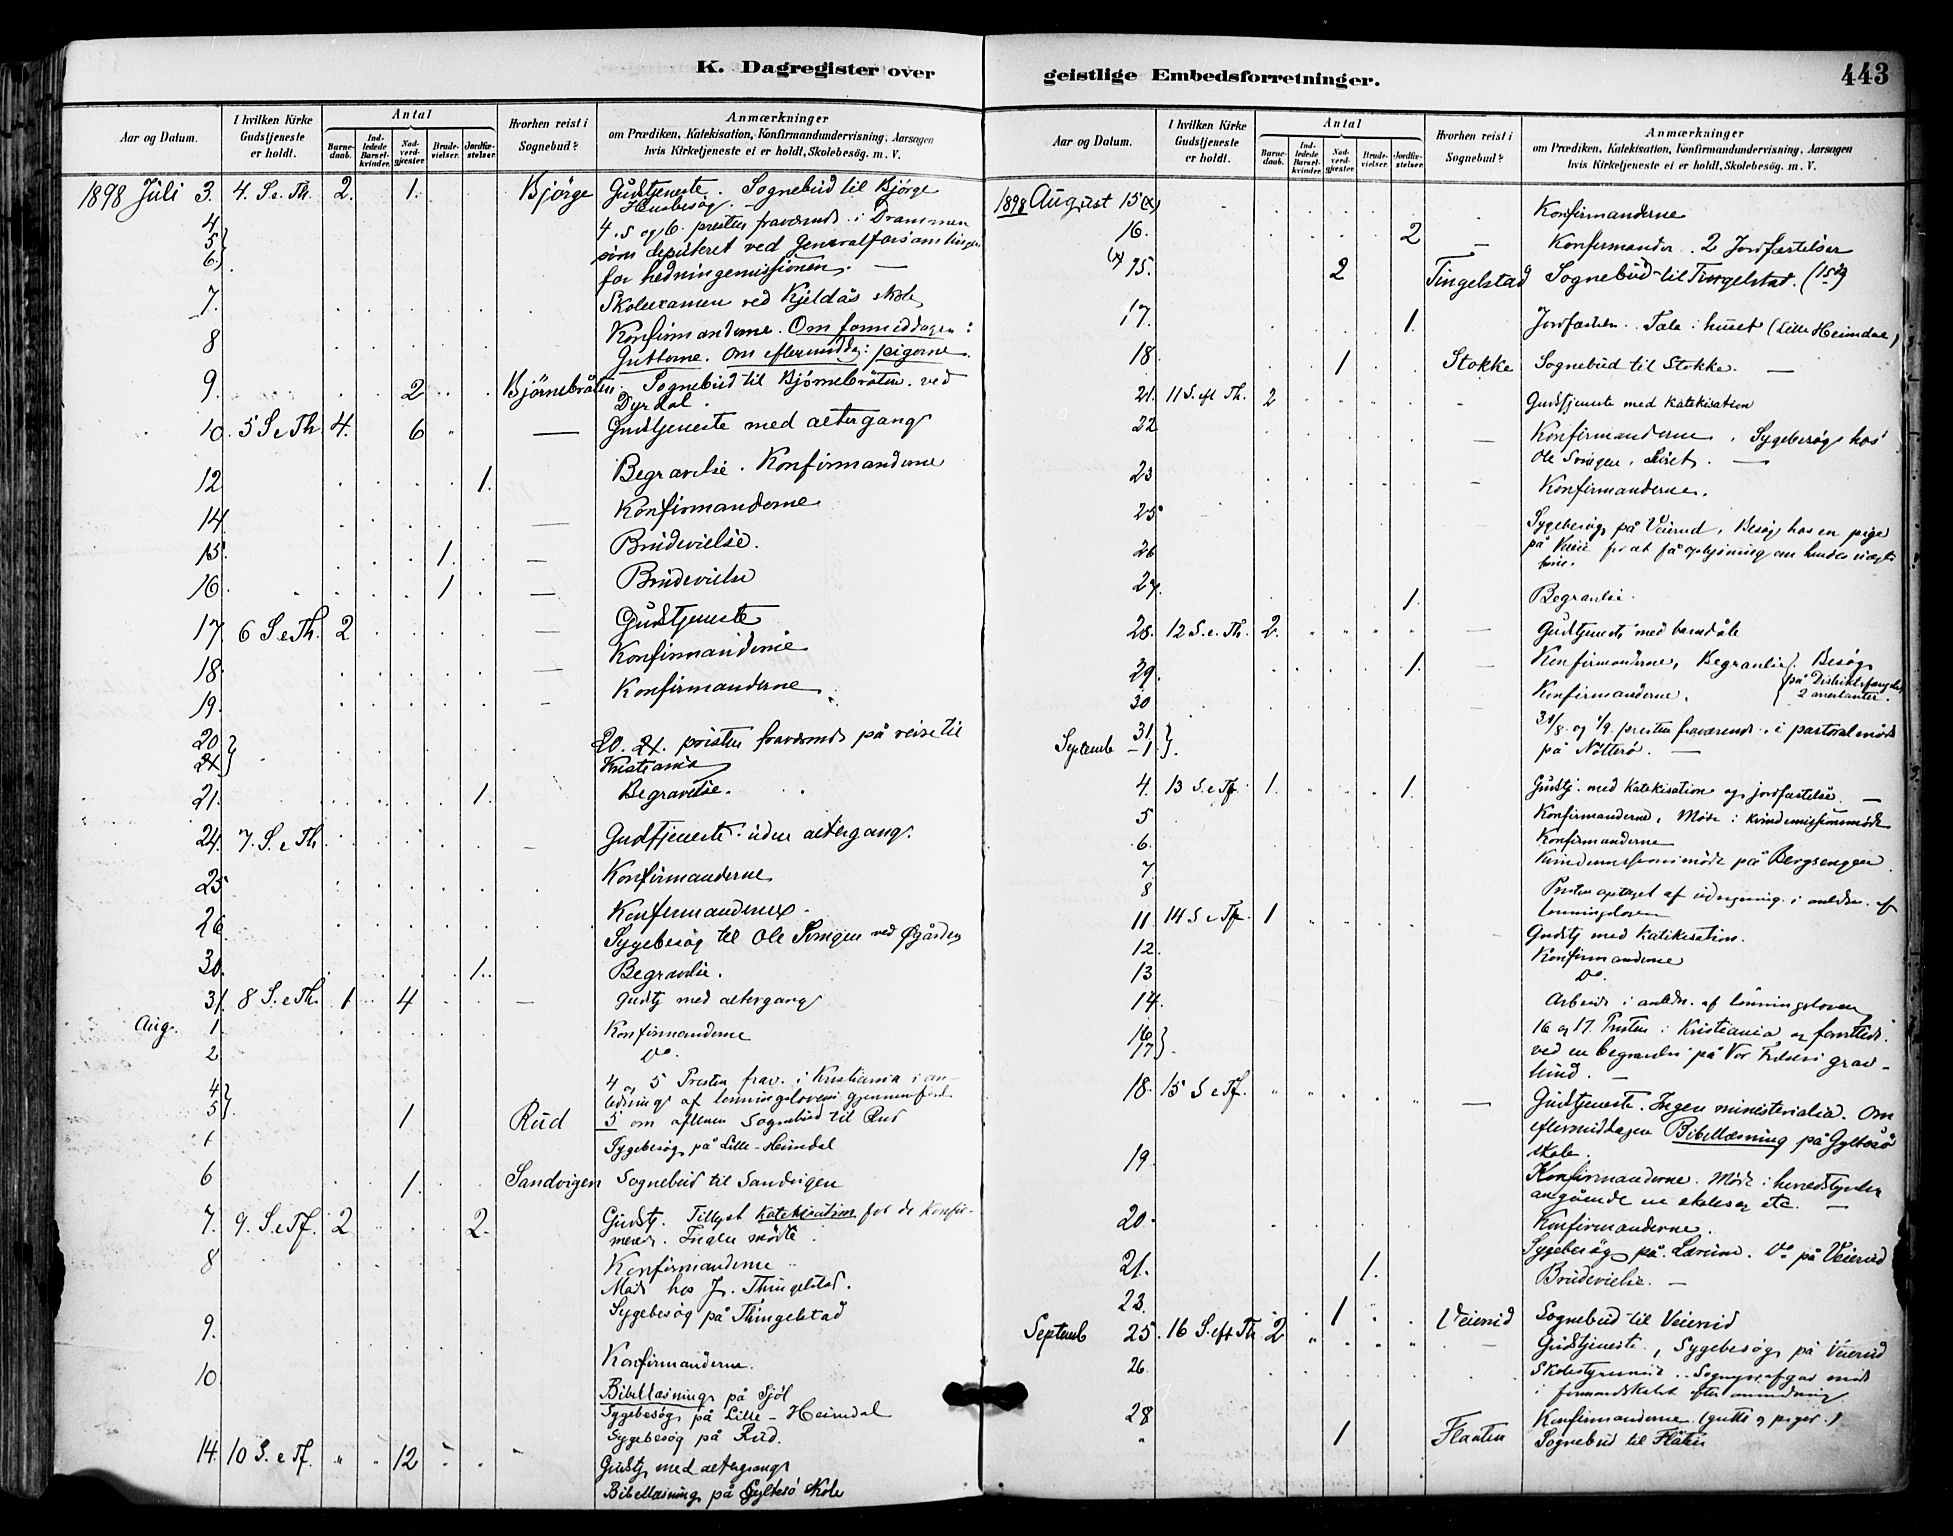 K. Dagregister over
Aar og Datum.
I hvilken Kirke Gudstjeneste er holdt.
Antal
Barnedaab.
Indledede Barselkvinder.
Nadverdgjester.
Brudevielser.
Jordfæstelser.
Hvorhen reist i Sognebud?
Anmærkninger
om Prædiken, Katekisation, Konfirmandundervisning, Aarsagen
hvis Kirketjeneste ei er holdt, Skolebesög. m. V.
1898 Juli 3. 4. S. e. Th. 2. 1. Bjørge Gudstjeneste. Sognebud til Bjørge
Husbesøg.
4 4. 5 og 6. presten fraværende i Drammen
5 som deputeret ved Generalforsamlingen
6. for hedningemissionen. —
7. Skoleexamen ved Kjeldås skole
8 Konfirmanderne. Om formiddagen:
Guttene. Om eftermiddg: pigerne.
9. 2 Bjørnebråten. Sognebud til Bjørnebråten ved
Dyrdal.
10. 5 S. e Th 4. 6 — Gudstjeneste med altergang
12 1. Begravelse. Konfirmanderne
14 — Konfirmanderne
15. 1. — Brudevielse.
16 1 — Brudevielse
17. 6 S. e Th. 2 — Gudstjeneste
18. Konfirmanderne
19. Konfirmanderne
20 20. 21. presten fraværende på reise til
21 Kristiania
21. 1. Begravelse.
24. 7. S. e Th Gudstjeneste uden altergang.
25 Konfirmanderne
26 Konfirmanderne.
Sygebesøg til Ole Svingen ved Øgården
30. 1. Begravelse.
31. 8 S. e Th. 1 4 — Gudstj med altergang
Aug. 1. Konfirmanderne
2 Do.
4 4 og 5 Presten frav. i Kristiania i an-
5 ledning af lønningslovens gjennemførel.
1 Rud 5 om aftenen Sognebud til Rud
Sygebesøg på Lille-Heimdal
6 1. Sandvigen Sognebud til Sandvigen
7. 9. S. e Tf. 2 2. Gudstj. Tillyst Katekisation for de konfir-
merede. Ingen mødte.
8 Konfirmanderne
Møde hos J. Thingelstad.
Sygebesøg på Thingelstad
9.
10 Konfirmanderne.
Bibellæsning på Sjøl
Sygebesøg på Lille-Heimdal
Sygebesøg på Rud.
14. 10 S. e Tf. " " 12 Gudstj med altergang
Bibellæsning på Gyltesø skole
geistlige Embedsforretninger.
443
Aar og Datum.
I hvilken Kirke Gudstjeneste er holdt.
Antal
Barnedaab.
Indledede Barselkvinder.
Nadverdgjester.
Brudevielser.
Jordfæstelser.
Hvorhen reist i Sognebud?
Anmærkninger
om Prædiken, Katekisation, Konfirmandundervisning, Aarsagen
hvis Kirketjeneste ei er holdt, Skolebesög. m. V.
1898 August 15 (x) Konfirmanderne
16. 2 — Konfirmander. 2 Jordfæstelser
(x) 15. 2 Tingelstad Sognebud til Tingelstad. (15/8)
17. 1. Jordfæstelse. Tale i huset (Lille Heimdal)
18 1 Stokke Sognebud til Stokke. —
21. 11 S. eft Th. 2 Gudstjeneste med katekisation
22 — Konfirmanderne. Sygebesøg hos
Ole Svingen. —
23 Konfirmanderne.
25 Sygebesøg på Veierud. Besøg hos en pige
26 på for at få oplysning om hendes
27. 1. Begravelse.
28. 12 S. e. Th. 2. — Gudstjeneste med barnedåb
29. 1. — Konfirmanderne, Begravelse. Besøg
på Distriktsfængslet
30 Konfirmanderne. 2 arrestanter.
31 31/8 og 1/9. presten fraværende i pastoralmøde
Septemb — 1 på Nøtterø. —
4. 13 S. e Tf. 1. 1. Gudstj. med katekisation og jordfæstelse —
5 Konfirmanderne. Møde i kvindemissionsmøde
6. Konfirmanderne
7 Kvindemissionsmøde på Bergsenggen
8 Presten optaget af udregning i anledn. af
lønningsloven
11 14 S e Tf. 1 Gudstj med Katekisation.
12. Konfirmanderne
13 Do.
14. Arbeide i anledn. af lønningsloven
16 16 og 17. Presten i Kristiania og forrettede
17 ved en begravelse på Vor Frelsers grav-
lund. —
18. 15 S e Tf. — Gudstjeneste. Ingen ministerialia. Om
eftermiddagen Bibellæsning på Gyltesø
skole.
19. Konfirmanderne. Møde i herredstyret
angående en skolesag etc. —
20. Konfirmanderne.
Sygebesøg på Lærum. Do på Veierud
21. 1. Brudevielse. —
23. 1 Veierud Sognebud til Veierud
Septemb 25. 16 S. eft Th 2 — Gudstjeneste, Sygebesøg på Veierud
26. Skolestyremøde.
i formandskabet efter anmodning
28 Konfirmanderne (gutter og piger.)
" 1 Flaaten Sognebud til Flåten